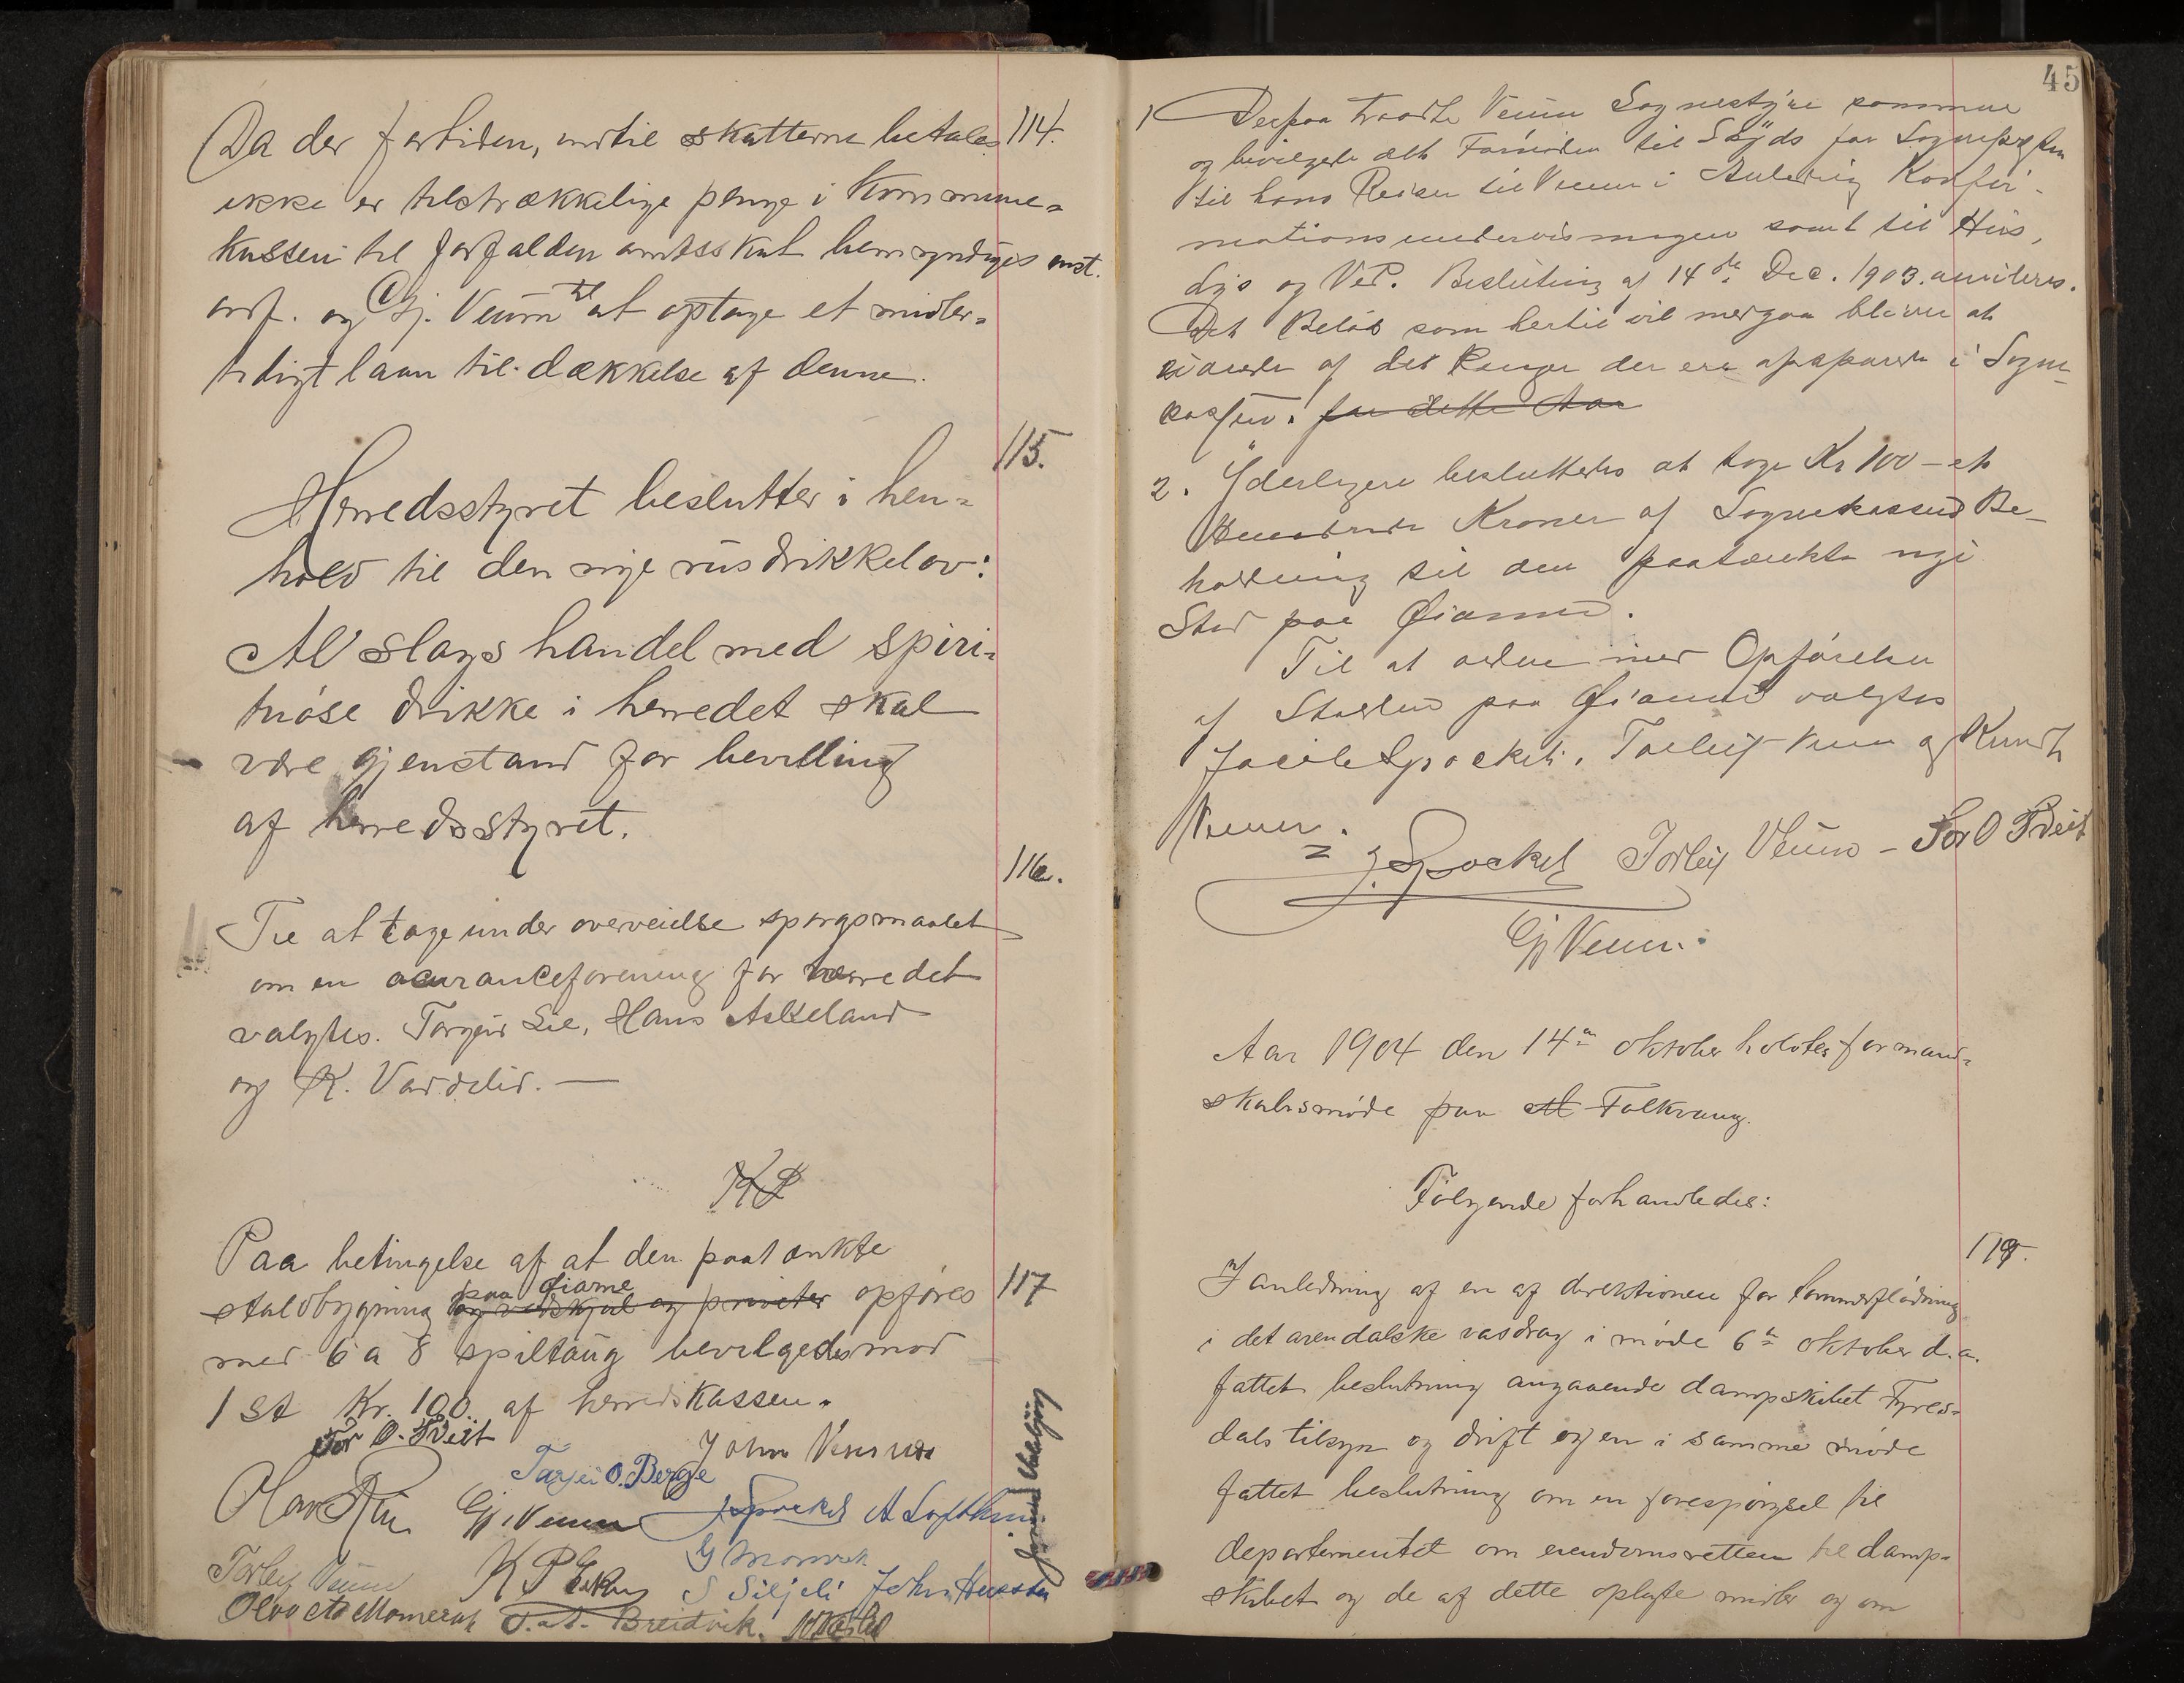 Da der fortiden, indtil skatterne betales 114.
ikke er tilstrækkelige penge i Kommune-
kassen til forfalden amtsskat bemyndiges
ordf. og Gj. Veum til at optage et midler-
tidigt laan til dækkelse af denne.
115.
Herredsstyret beslutter i hen-
hold til den nye rusdrikkelov:
Al slags handel med spiri-
tuøse drikke i herredet skal
være gjenstand for bevilling
af herredsstyret.
116.
Til at tage under overveielse spørgsmaalet
om en assuranceforening for herredet
valgtes. Torgeir Lie, Hans Askeland
og K. Vardelid. —
Paa betingelse af at den paatænkte
staldbygning paa Øiarne opføres 117
med 6 a 8 spiltaug bevilgedes mod
1 St Kr. 100 af herredskassen.
Tor O. Tveit
John Veum
Tarjei O. Berge
Gj. Veum J Spockeli A Lofthus
Torleif Veum
S Siljeli John
Olav Momrak O. A. Breidvik.
45
1 Derpaa traadte Veum Sognestyre sammen
og bevilgede det Fornødne til Skyds for Sognepresten
til hans Reiser til Veum i Anledning Konfir-
mationsundervisningen samt til Hus,
Lys og Ved. Beslutning af 14de Dec. 1903. anuleres.
Det Beløb som hertil vil medgaa blir at
af de Penge der ere opsparede i Sogne-
kassen. for dette Aar
2. Yderligere besluttedes at tage Kr 100 – et
Hundrede Kroner af Sognekassens Be-
holdning til den paatænkte nye
Stald paa Øiarne.
Til at ordne med Opførelsen
af Stalden paa Øiarne valgtes
Spockeli, Torleif Veum og Knudt
Veum.
J. Spockeli Torleif Veum – Tor O Tveit
Gj Veum.
Aar 1904 den 14de oktober holdtes formand-
skabsmøde paa Folkvang.
Følgende forhandledes:
118.
I anledning af en af direktionen for tømmerflødning
i det arendalske vasdrag i møde 6te oktober d.a.
fattet beslutning angaaende dampskibet Fyres-
dals tilsyn og drift og en i samme møde
fattet beslutning om en forespørgsel til
departementet om eiendomsretten til damp-
skibet og de af dette oplagte midler og om